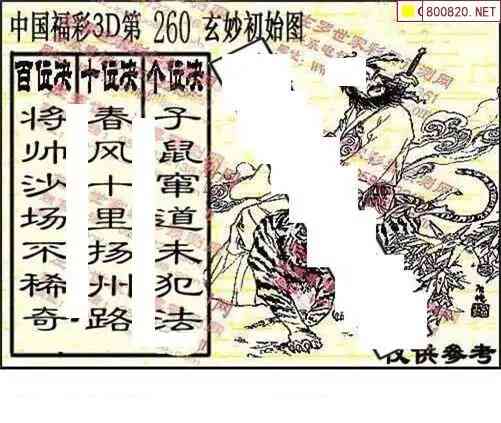 800820.NET
中国福彩3D第 260 玄妙初始图
百位决 十位决 个位决
将帅沙场不稀奇
春风十里扬州路
子鼠窜道未犯法
仅供参考